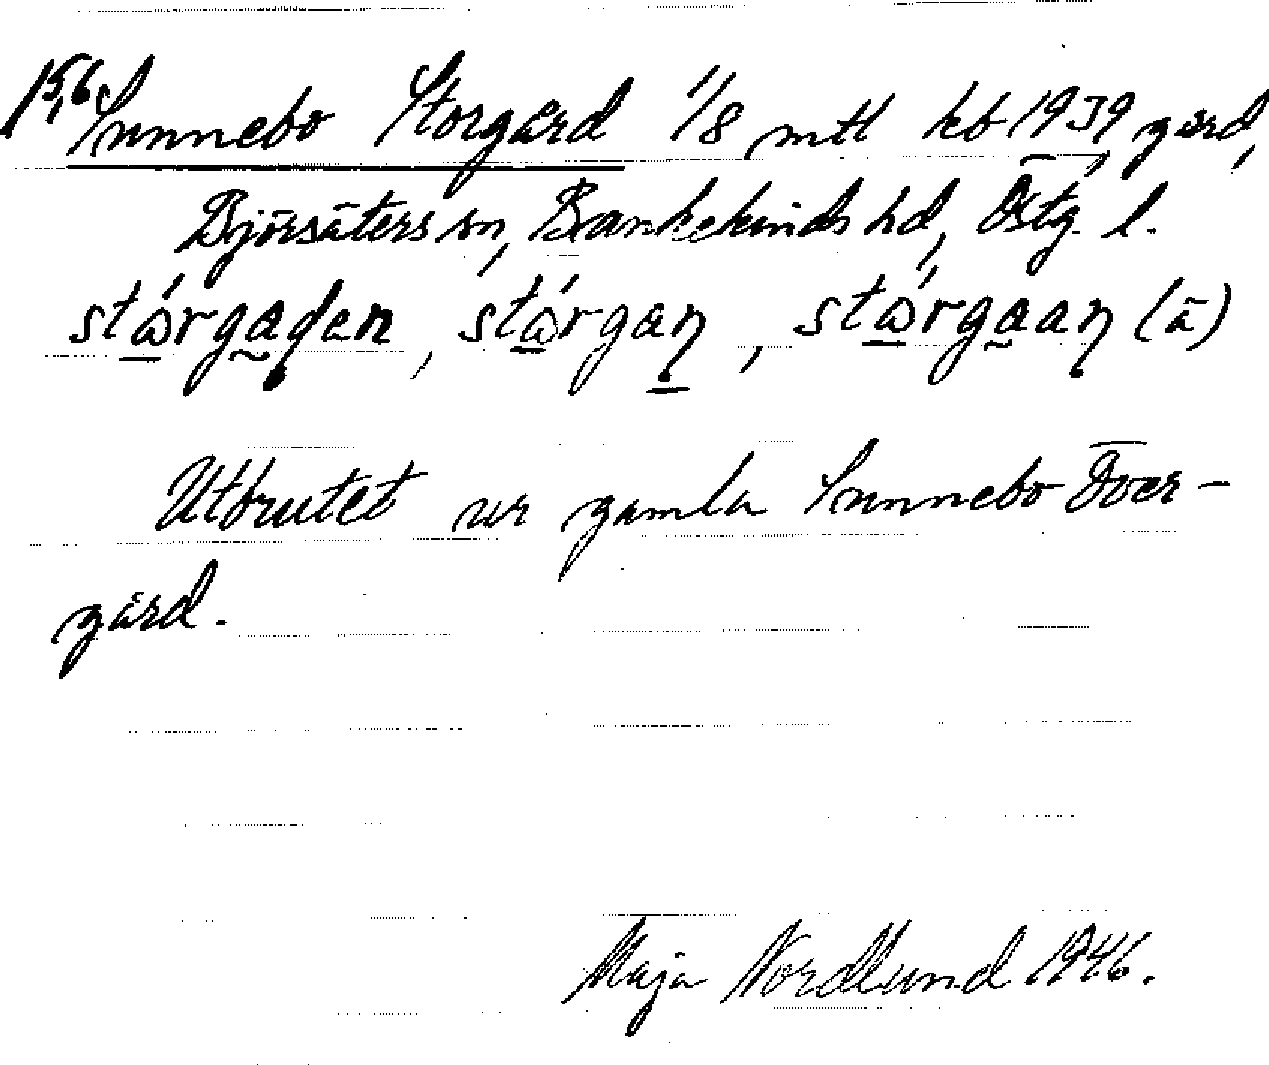 156 Sunnebo Storgård 1/8 mtl kb 1939 gård,
Björsäters sn, Bankekinds hd, Östg. l.
stórgaɖen, stórgaṇ, stórgaaṇ (ā)
Utbrutet ur gamla Sunnebo Över-
gård.
Maja Nordlund 1946.